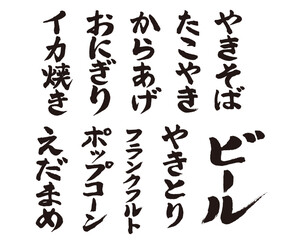 やきそば
たこやき
からあげ
おにぎり
イカ焼き
ビール
やきとり
フランクフルト
ポップコーン
えだまめ